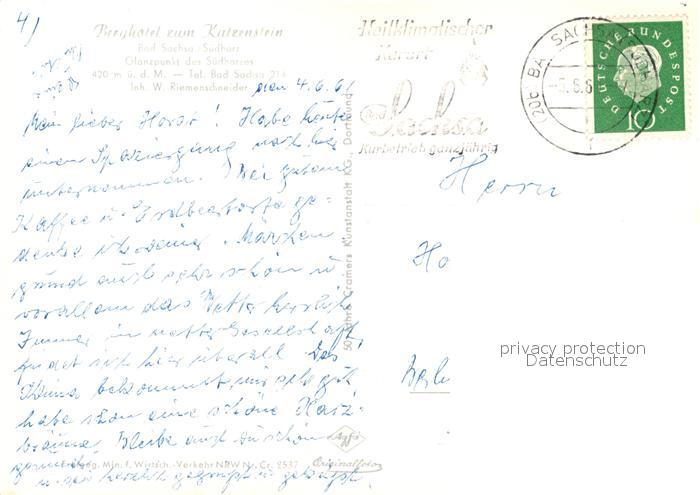 4)
Berghotel zum Katzenstein
Bad Sachsa/Südharz
Glanzpunkt des Südharzes
420 m ü. d. M. — Tel. Bad Sachsa 214
Inh. W. Riemenschneider
den 4.6.61
Mein lieber Horst! Habe heute
einen Spaziergang nach hier
unternommen. Bei gutem
Kaffee u. Erdbeertorte ge-
denke ich deiner. Märchen
grund auch sehr schön u
vorallem das Wetter herrlich
Immer in netter Gesellschaft
findet sich hier überall. Das
Klima bekommt mir sehr gut
habe schon eine schöne Harz-
bräune. Bleibe auch du schön
gesund
u. sei herzlich gegrüßt u. geküsst
Genehmigg. Min. f. Wirtsch.-Verkehr NRW Nr. Cr. 2537
Agfa
Originalfoto
50 Jahre Cramers Kunstanstalt KG. Dortmund
Heilklimatischer
Kurort
Bad
Sachsa
Kurbetrieb ganzjährig
(20b) BAD SACHSA
DEUTSCHE BUNDESPOST
10
Herrn
Ho
Berl
privacy protection
Datenschutz